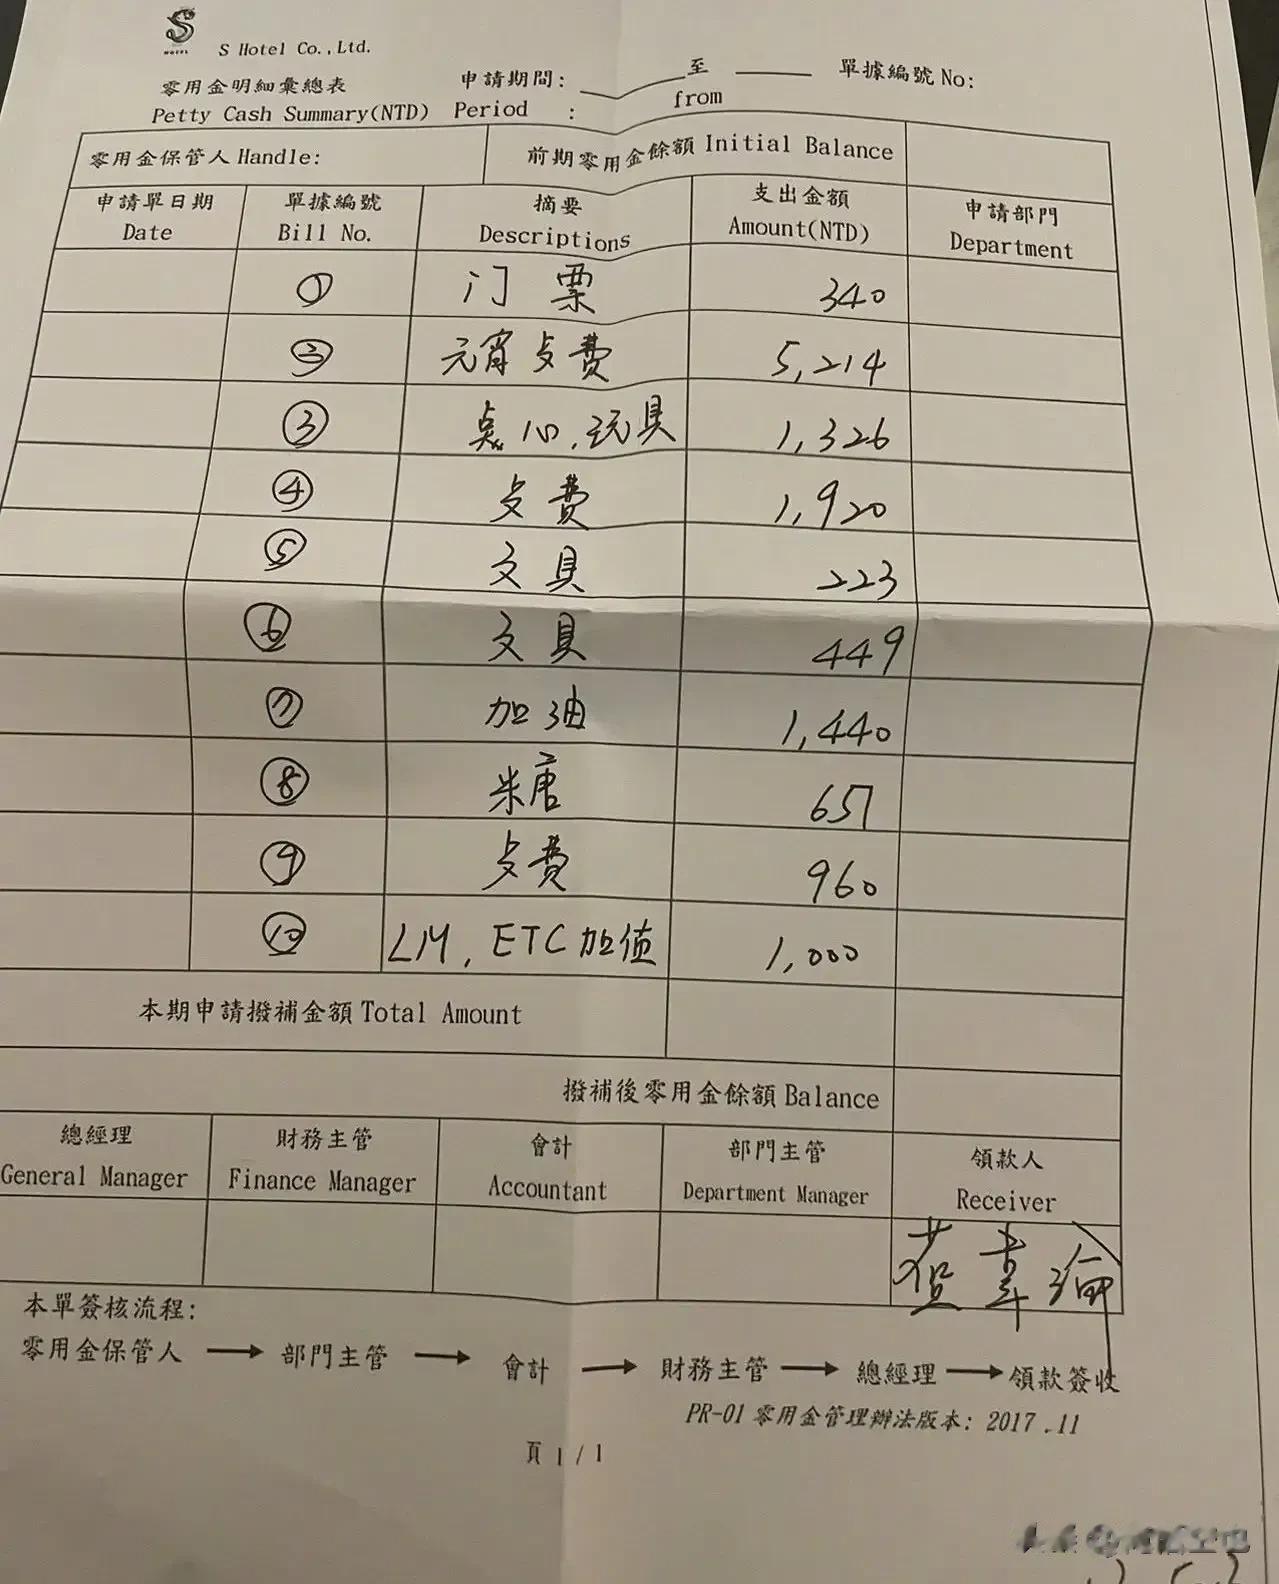 S
HOTEL
S Hotel Co.,Ltd.
零用金明細彙總表 申請期間: 至 單據編號 No:
Petty Cash Summary(NTD) Period : from
零用金保管人 Handle: 前期零用金餘額 Initial Balance
申請單日期 單據編號 摘要 支出金額 申請部門
Date Bill No. Descriptions Amount(NTD) Department
① 门票 340
② 元宵歺費 5,214
③ 点心,玩具 1,326
④ 歺費 1,920
⑤ 文具 223
⑥ 文具 449
⑦ 加油 1,440
⑧ 糖 657
⑨ 歺費 960
⑩ LM, ETC加值 1,000
本期申請撥補金額 Total Amount
撥補後零用金餘額 Balance
總經理 財務主管 會計 部門主管 領款人
General Manager Finance Manager Accountant Department Manager Receiver
本單簽核流程:
零用金保管人 → 部門主管 → 會計 → 財務主管 → 總經理 → 領款簽收
PR-01 零用金管理辦法版本: 2017 .11
頁 1 / 1